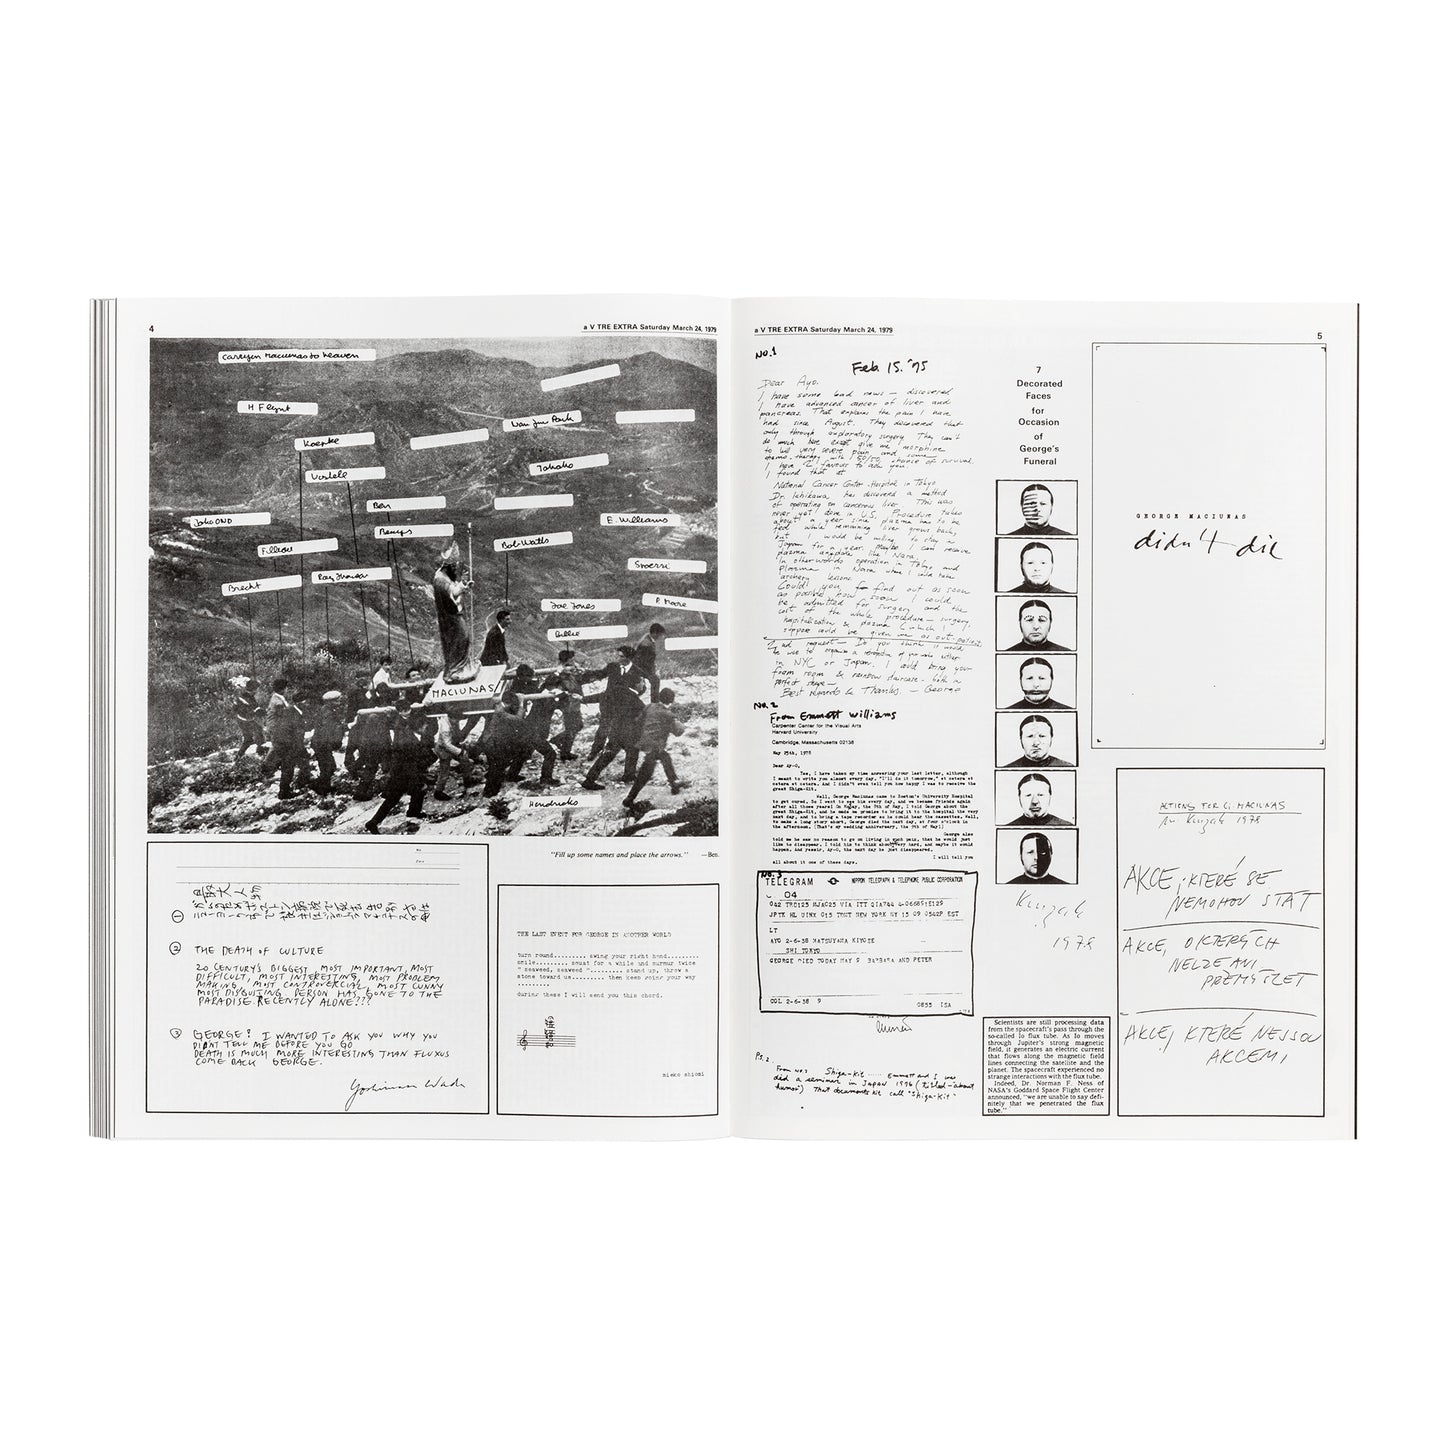 4
a V TRE EXTRA Saturday March 24, 1979
Carrying Maciunas to heaven
H Flynt
Nam Jun Paik
Koepke
Takako
Vostell
Ben
Joko ONO
E. Williams
Remys
Bob Watts
Filliou
Spoerri
Ray Jhonson
Brecht
P. Moore
Joe Jones
Billie
MACIUNAS
Hendricks
"Fill up some names and place the arrows." —Ben.
②
THE DEATH OF CULTURE
20 CENTURY'S BIGGEST, MOST IMPORTANT, MOST
DIFFICULT, MOST INTERESTING, MOST PROBLEM
MAKING, MOST CONTROVERCIAL, MOST CUNNY
MOST DISGUSTING PERSON HAS GONE TO THE
PARADISE RECENTLY ALONE???
③
GEORGE! I WANTED TO ASK YOU WHY YOU
DIDNT TELL ME BEFORE YOU GO
DEATH IS MUCH MORE INTERESTING THAN FLUXUS
COME BACK GEORGE.
Yoshimasa Wada
THE LAST EVENT FOR GEORGE IN ANOTHER WORLD
turn round......... swing your right hand........
smile......... squat for a while and murmur twice
" seaweed, seaweed "......... stand up, throw a
stone toward us......... then keep going your way
.........
during these I will send you this chord.
mieko shiomi
a V TRE EXTRA Saturday March 24, 1979
5
No.1
Feb. 15. '75
Dear Ayo.
I have some bad news — discovered
I have advanced cancer of liver and
pancreas. That explains the pain I have
had since August. They discovered that
only through exploratory surgery. They can't
do much here except give me morphine
to kill very severe pain and some
chemo-therapy with 50/50 chance of survival.
I have 2 favours to ask you.
I found that at
National Cancer Center Hospital in Tokyo
Dr. Ichikawa has discovered a method
of operating on cancerous liver. This was
never yet done in U.S. Procedure takes
about a year since plasma has to be
fed while remaining liver grows back,
but I would be willing to stay in
Japan for a year. Maybe I can receive
plasma anyplace like Nara.
In other words operation in Tokyo and
Plasma in Nara where I could take
archery lessons
Could you find out as soon
as possible how soon I could
be admitted for surgery and the
cost of the whole procedure — surgery,
hospitalization & plasma (which I
suppose could be given me as out-patient
2nd request — Do you think it would
be wise to organize a retrospective of your work either
in NYC or Japan. I could bring your
foam room & rainbow staircase - both in
perfect shape —
Best regards & Thanks — George
No.2
From Emmett Williams
Carpenter Center for the Visual Arts
Harvard University
Cambridge, Massachusetts 02138
May 25th, 1978
Dear Ay-O,
Yes, I have taken my time answering your last letter, although
I meant to write you almost every day. "I'll do it tomorrow," et cetera et
cetera et cetera. And I didn't even tell you how happy I was to receive the
great Shiga-Kit.
Well, George Maciunas came to Boston's University Hospital
to get cured. So I went to see him every day, and we became friends again
after all those years! On Monday, the 7th of May, I told George about the
great Shiga-Kit, and he made me promise to bring it to the hospital the very
next day, and to bring a tape recorder so he could hear the cassettes. Well,
to make a long story short, George died the next day, at four o'clock in
the afternoon. (That's my wedding anniversary, the 9th of May!)
George also
told me he saw no reason to go on living in such pain, that he would just
like to disappear. I told him to think about very hard, and maybe it would
happen. And yessir, the next day he just disappeared.
I will tell you
all about it one of these days.
No.3
TELEGRAM NIPPON TELEGRAPH & TELEPHONE PUBLIC CORPORATION
04
JPTK HL UINX 015 TDNT NEW YORK NY 15 09 0542P EST
LT
AYO 2-6-38 MATSUYAMA KIYOSE
SHI TOKYO
GEORGE DIED TODAY MAY 9 BARBARA AND PETER
COL 2-6-38 9 0855 ISA
P.S. 2
From no.2 Shiga-Kit ...... Emmett and I was
did a seminar in Japan 1976 (titled - "about
humor") That documents kit call "Shiga-Kit"
7
Decorated
Faces
for
Occasion
of
George's
Funeral
Knizak
1978
Scientists are still processing data
from the spacecraft's pass through the
so-called Io flux tube. As Io moves
through Jupiter's strong magnetic
field, it generates an electric current
that flows along the magnetic field
lines connecting the satellite and the
planet. The spacecraft experienced no
strange interactions with the flux tube.
Indeed, Dr. Norman F. Ness of
NASA's Goddard Space Flight Center
announced, "we are unable to say defi-
nitely that we penetrated the flux
tube."
GEORGE MACIUNAS
didn't die
ACTIONS FOR G. MACIUNAS
Knizak 1978
AKCE, KTERÉ SE
NEMOHOU STÁT
AKCE, O KTERÝCH
NELZE ANI
PŘEMÝŠLET
AKCE, KTERÉ NEJSOU
AKCEMI